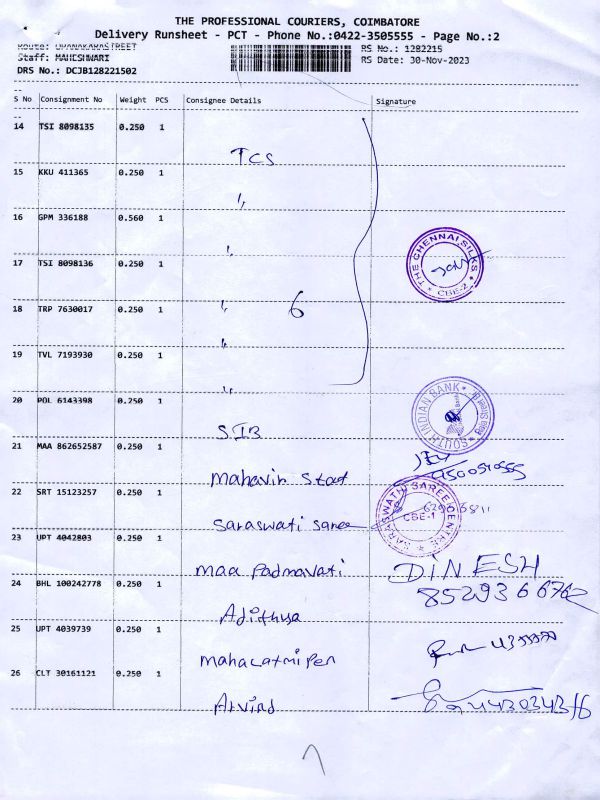 THE PROFESSIONAL COURIERS, COIMBATORE
Delivery Runsheet - PCT - Phone No.:0422-3505555 - Page No.:2
Route: UPANAKARASTREET RS No.: 1282215
Staff: MAHESHWARI RS Date: 30-Nov-2023
DRS No.: DCJB128221502
S No Consignment No Weight PCS Consignee Details Signature
14 TSI 8098135 0.250 1
TCS
15 KKU 411365 0.250 1
,,
16 GPM 336188 0.560 1
,,
THE CHENNAI SILKS
CBE-2
17 TSI 8098136 0.250 1
,, 6
18 TRP 7630017 0.250 1
,,
19 TVL 7193930 0.250 1
,,
20 POL 6143398 0.250 1
SIB
SOUTH INDIAN BANK
21 MAA 862652587 0.250 1
Mahavir Stoot
22 SRT 15123257 0.250 1
Saraswati Saree
SARASWATHI SAREE CENTRE
CBE-1
23 UPT 4042803 0.250 1
Maa Padmavati DINESH
24 BHL 100242778 0.250 1
Adithya
25 UPT 4039739 0.250 1
Mahalatmi Pen
26 CLT 30161121 0.250 1
Arvind